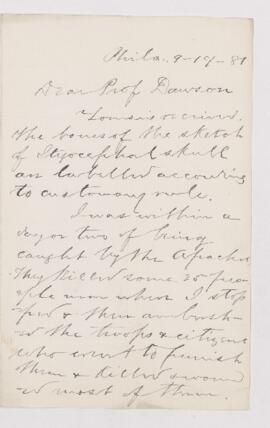 Phila. 9-19-81
Dear Prof Dawson
Yours is received.
The bones of the sketch
of Stegocephal skull
are labelled according
to customary rule.
I was within a
day or two of being
caught by the Apaches
They killed some 20 peo-
ple near where I stop
ped & then ambush-
ed the troops & citizens
who went to punish
them & killed & wound
-ed most of them.